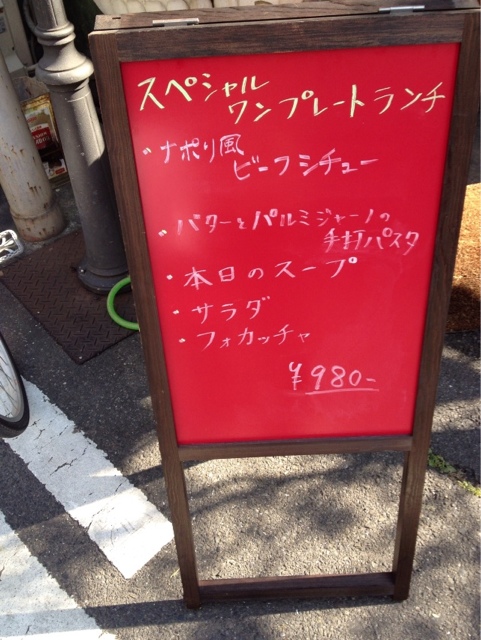 スペシャル
ワンプレートランチ
・ナポリ風
ビーフシチュー
・バターとパルミジャーノの
手打パスタ
・本日のスープ
・サラダ
・フォカッチャ
¥980-